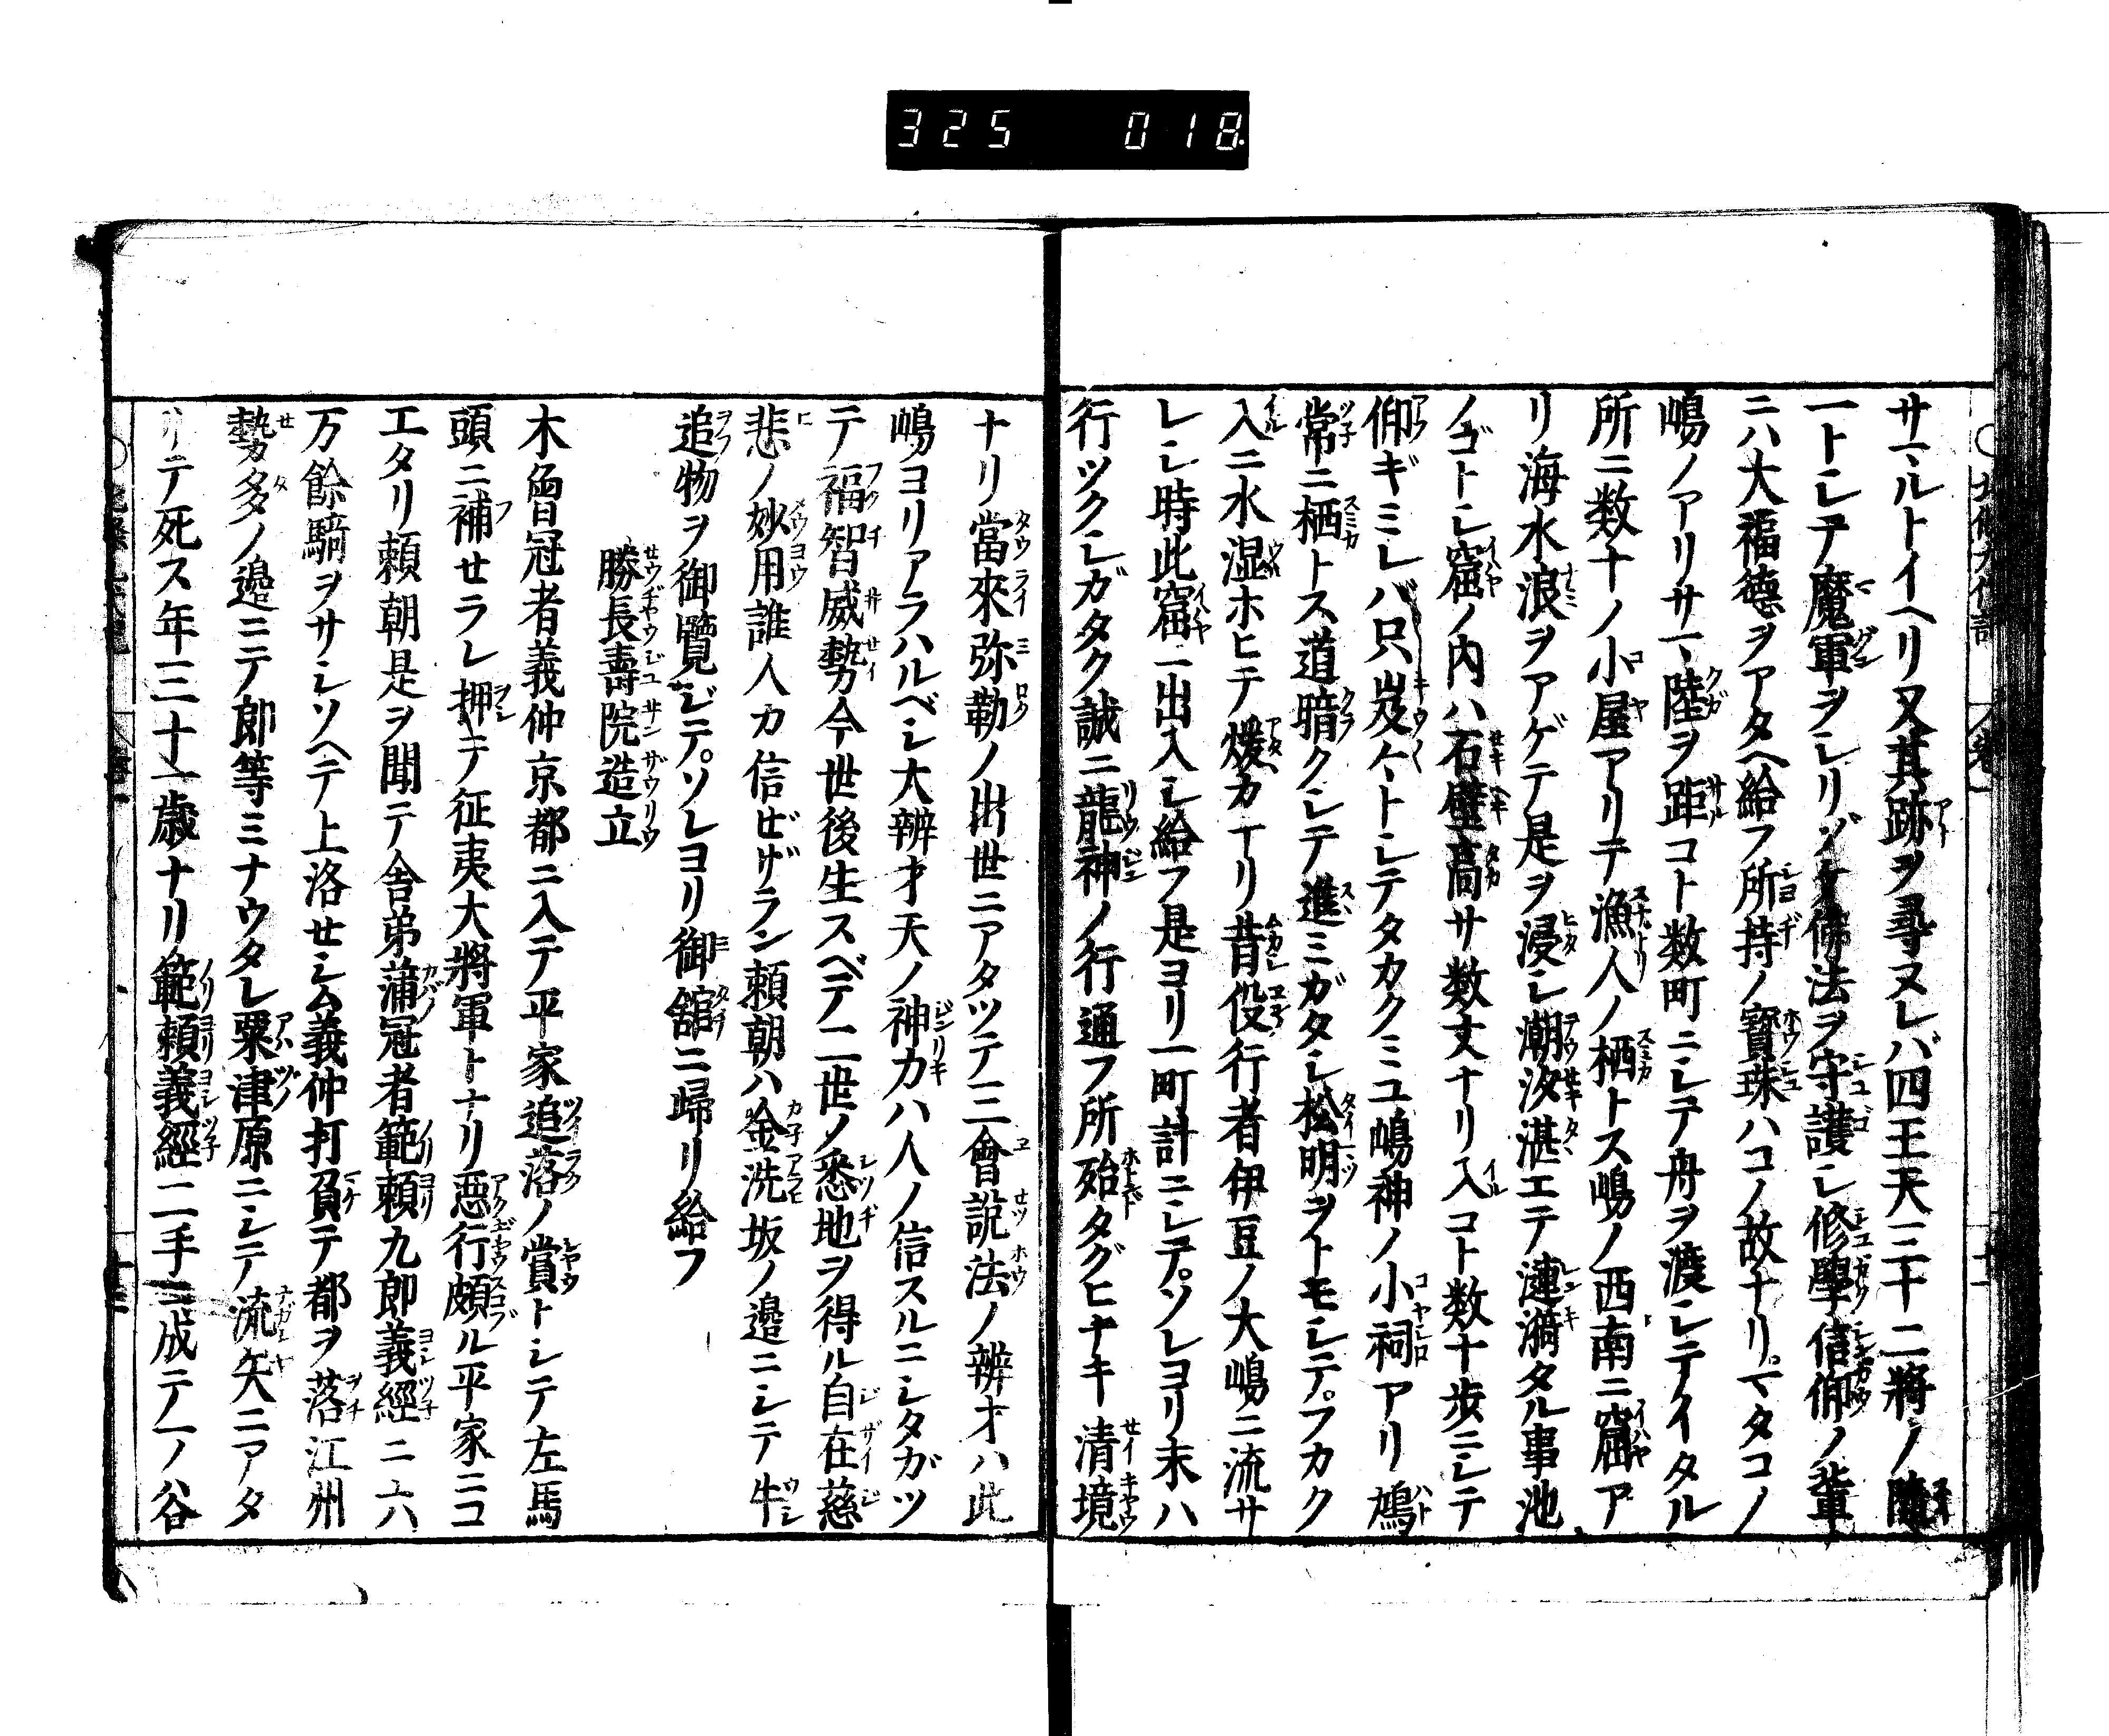 325 018
サマルトイヘリ又其跡ヲ尋ヌレバ四王天三十二將ノ隨
一トシテ魔軍ヲシリゾケ佛法ヲ守護シ修學信仰ノ輩
ニハ大福德ヲアタヘ給フ所持ノ寳珠ハコノ故ナリマタコノ
嶋ノアリサマ陸ヲ距コト数町ニシテ舟ヲ渡シテイタル
所ニ数十ノ小屋アリテ漁人ノ栖トス嶋ノ西南ニ窟ア
リ海水浪ヲアゲテ是ヲ浸シ潮汐湛エテ漣漪タル事池
ノゴトシ窟ノ内ハ石壁高サ数丈ナリ入コト数十歩ニシテ
仰ギミレバ只岌々トシテタカクミユ嶋神ノ小祠アリ鳩
常ニ栖トス道暗クシテ進ミガタシ松明ヲトモシテフカク
入ニ水湿ホヒテ煖カナリ昔役行者伊豆ノ大嶋ニ流サ
レシ時此窟ニ出入シ給フ是ヨリ一町計ニシテソレヨリ末ハ
行ツクシガタク誠ニ龍神ノ行通フ所殆タグヒナキ清境
ナリ當來弥勒ノ出世ニアタツテ三會說法ノ辨才ハ此
嶋ヨリアラハルベシ大辨才天ノ神力ハ人ノ信スルニシタガツ
テ福智威勢今世後生スベテ二世ノ悉地ヲ得ル自在慈
悲ノ妙用誰人カ信ゼザラン頼朝ハ金洗坂ノ邉ニシテ牛
追物ヲ御覽ジテソレヨリ御舘ニ歸リ給フ
勝長壽院造立
木曾冠者義仲京都ニ入テ平家追落ノ賞トシテ左馬
頭ニ補セラレ押テ征夷大將軍トナリ惡行頗ル平家ニコ
エタリ頼朝是ヲ聞テ舎弟蒲冠者範頼九郎義經ニ六
万餘騎ヲサシソヘテ上洛セシム義仲打負テ都ヲ落江州
勢多ノ邉ニテ郎等ミナウタレ粟津原ニシテ流矢ニアタ
リテ死ス年三十一歳ナリ範頼義經二手ニ成テ一ノ谷